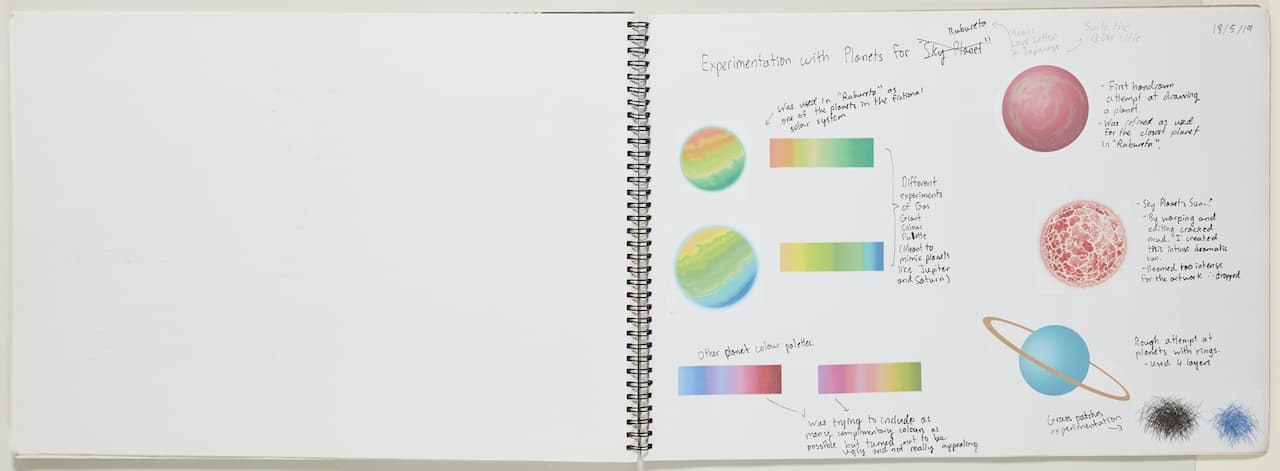 Rabureta
Means
Love Letter
in Japanese
Suits the
BOW title
18/5/19
Experimentation with Planets for "Sky Planet"
Was used in "Rabureta" as
one of the planets in the fictional
solar system
Different
experiments
of Gas
Giant
Colour
Palette
(Meant to
mimic planets
like Jupiter
and Saturn)
Other planet colour palettes.
Was trying to include as
many complimentary colours as
possible but turned out to be
ugly and not really appealing.
- First handdrawn
attempt at drawing
a planet.
- Was refined as used
for the closest planet
in "Rabureta".
- Sky Planet's Sun.
- By warping and
editing cracked
mud. I created
this intense dramatic
sun.
- Deemed too intense
for the artwork ∴ dropped
Rough attempt at
planets with rings.
- Used 4 layers
Grass patches
experimentation